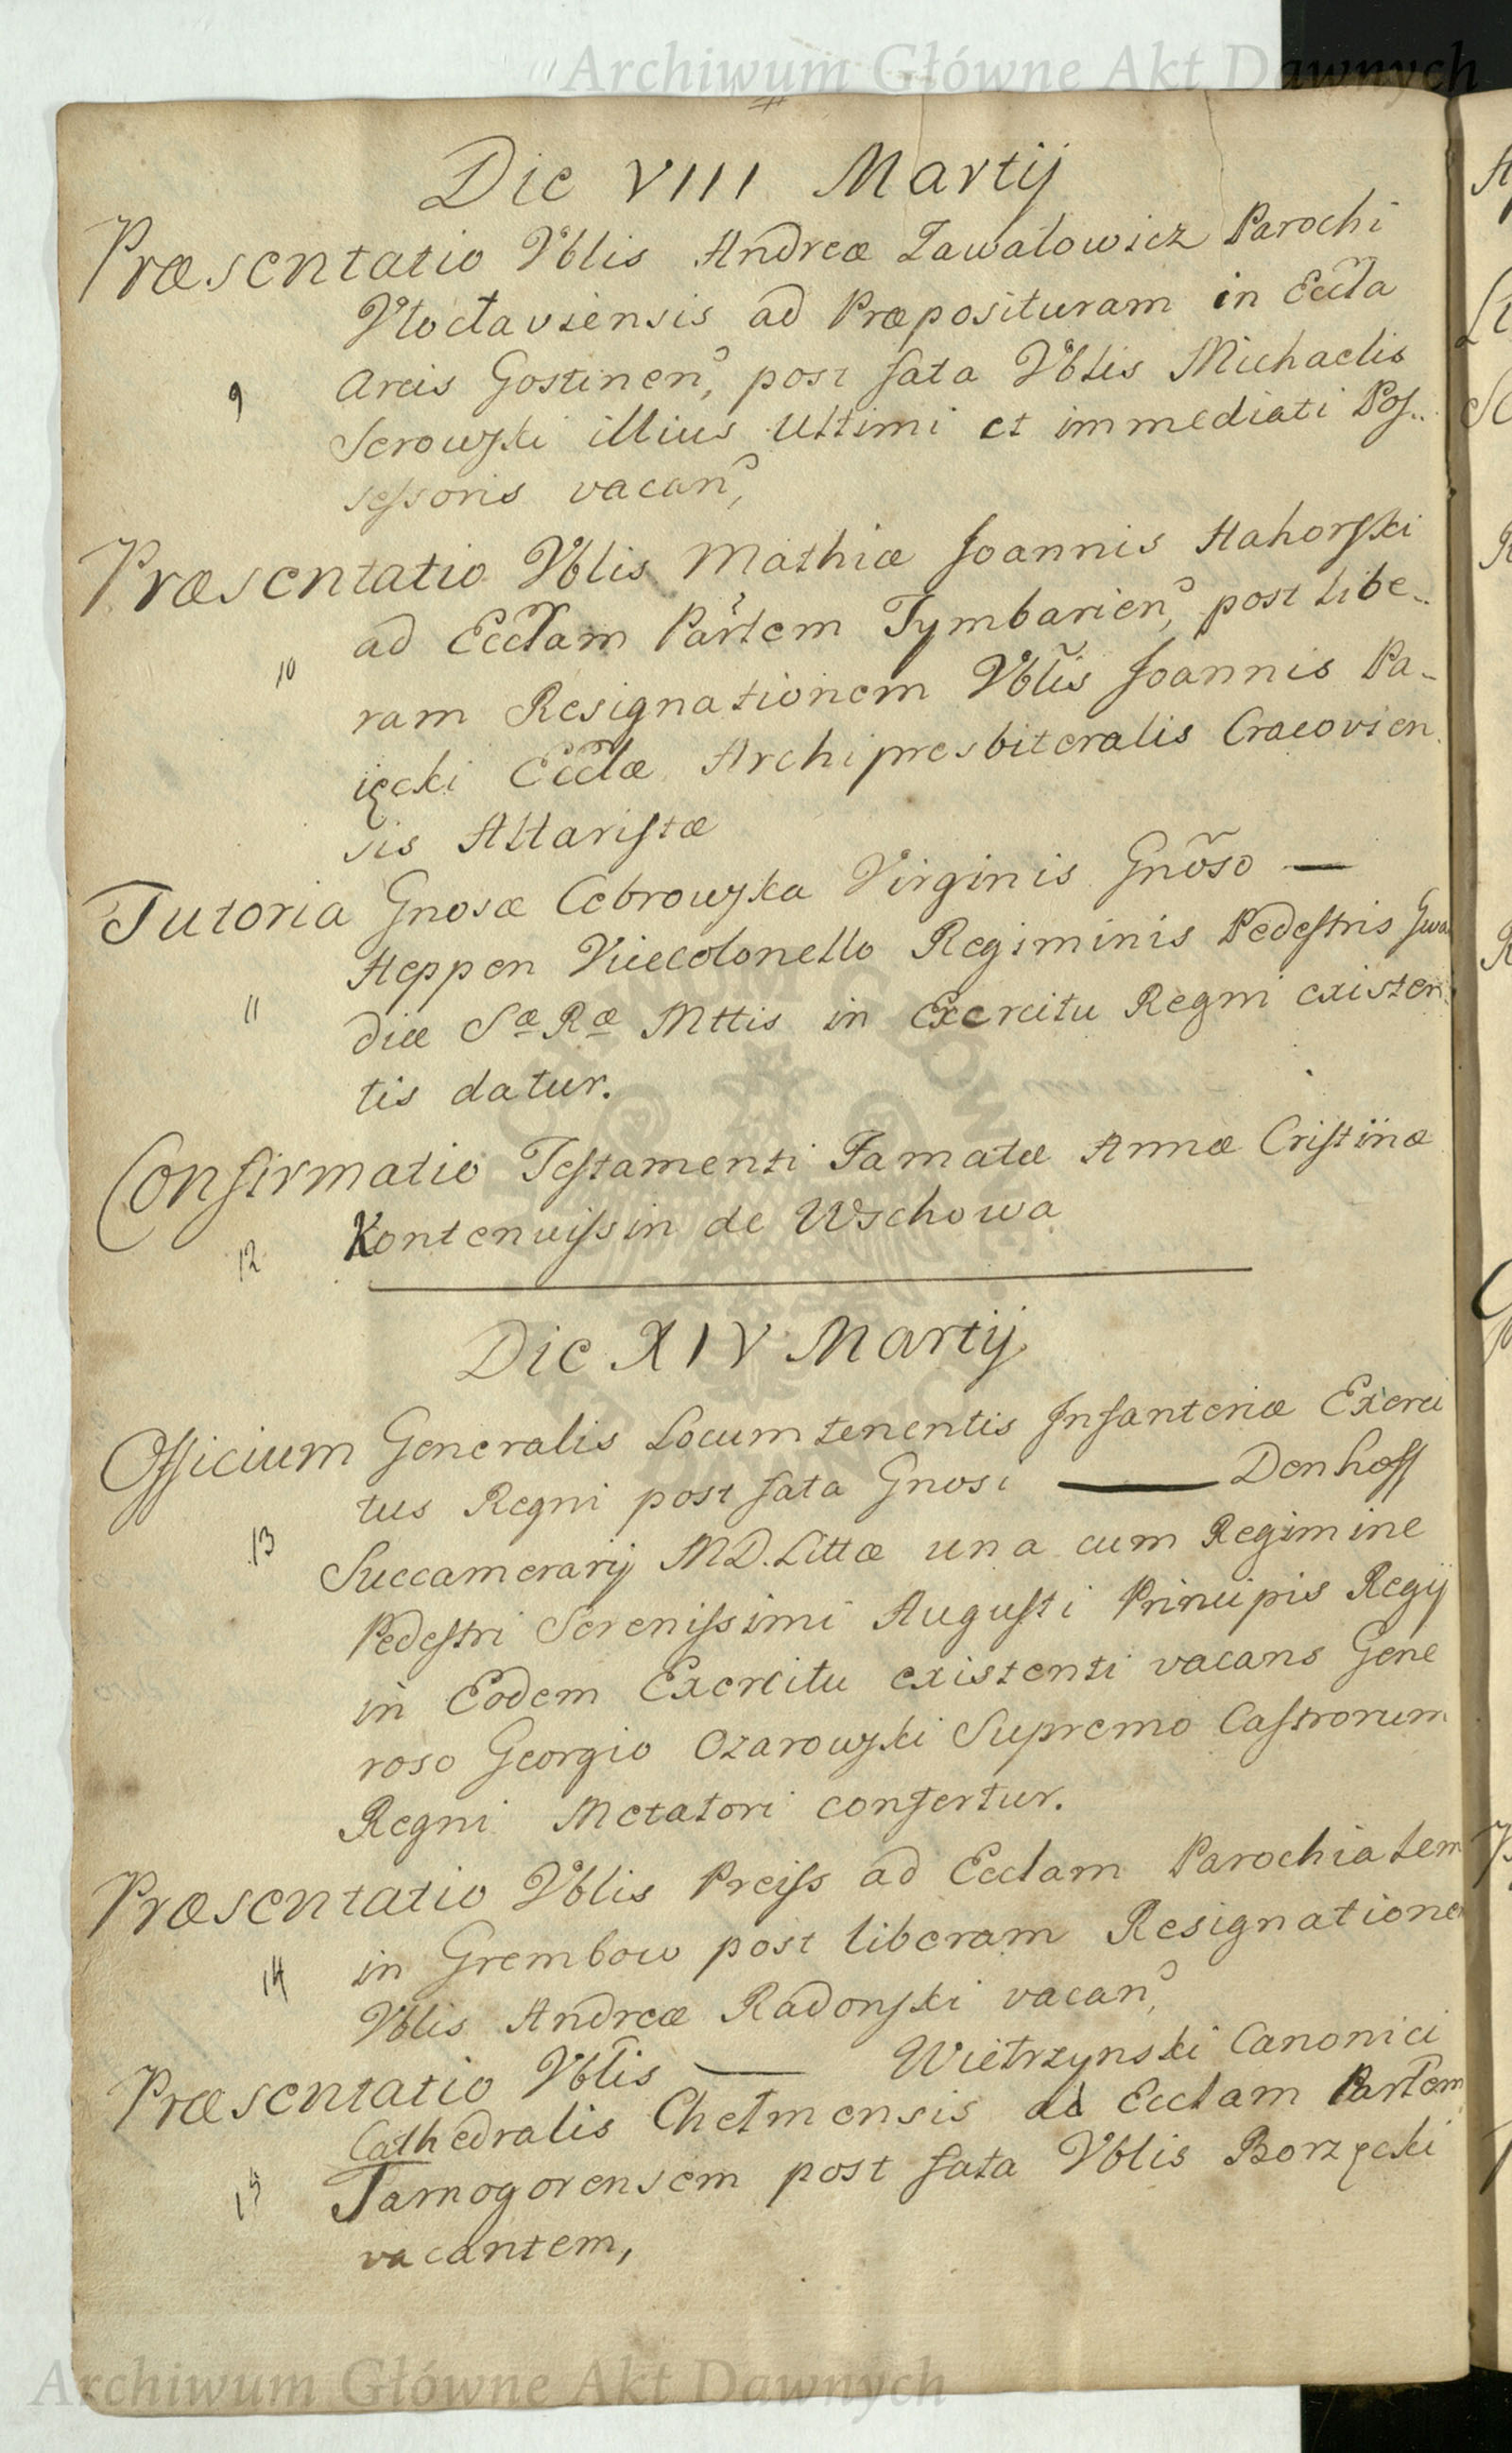 Archiwum Główne Akt Dawnych
Die VIII Martij
Præsentatio Vblis Andreæ Zawałowicz Parochi
Włocławiensis ad Præposituram in Eccła
Arcis Gostinen, post fata Vblis Michaelis
Serowski illius Ultimi et immediati Pos..
9
sessoris vacan,
Præsentatio Vblis Mathiæ Joannis Hahorski
ad Ecclam Partem Tymbarien, post libe..
10
ram Resignationem Vblis Joannis Pa-
ięcki Ecclæ Archipresbiteralis Cracovien
sis Altaristæ
Tutoria Gnosæ Cebrowska Virginis Gnoso —
Heppen Vicecolonello Regiminis Pedestris Gwar
11
diæ Sæ Ræ Mttis in Exercitu Regni existen
tis datur.
Confirmatio Testamenti Famatæ Annæ Cristinæ
Kontenuissin de Wschowa
12
Die XIV Martij
Officium Generalis Locumtenentis Infanteriæ Exerci
tus Regni post fata Gnosi — Denhoff
13
Succamerarij MD. Littæ una cum Regimine
Pedestri Serenissimi Augusti Principis Regij
in Eodem Exercitu existenti vacans Gene
roso Georgio Ozarowski Supremo Castrorum
Regni Metatori confertur.
Præsentatio Vblis Preiss ad Ecclam Parochialem
in Grembow post liberam Resignationem
14
Vblis Andreæ Radonski vacan,
Præsentatio Vblis — Wietrzynski Canonici
Cathedralis Chełmensis ad Ecclam Partem
Tarnogorensem post fata Vblis Borzęcki
15
vacantem,
Archiwum Główne Akt Dawnych